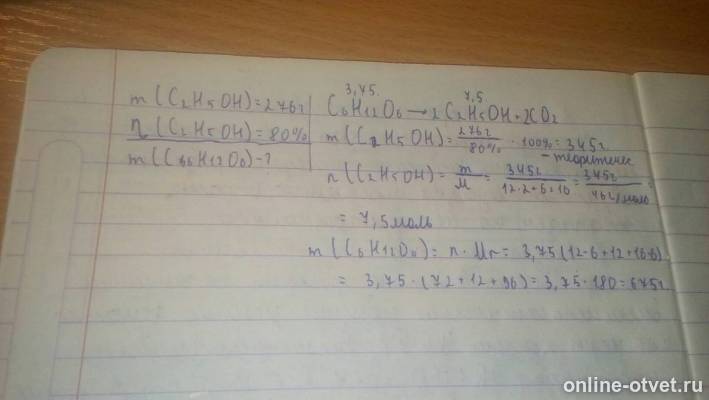 m(C₂H₅OH)=276г
η(C₂H₅OH)=80%
m(C₆H₁₂O₆)-?
3,75 7,5
C₆H₁₂O₆→2C₂H₅OH+2CO₂
m(C₂H₅OH)=276г/80%·100%=345г
-теоритичес
n(C₂H₅OH)=m/M=345г/12·2+6+16=345г/46г/моль=
=7,5моль
m(C₆H₁₂O₆)=n·Mr=3,75(12·6+12+16·6)
=3,75·(72+12+96)=3,75·180=675г
online-otvet.ru